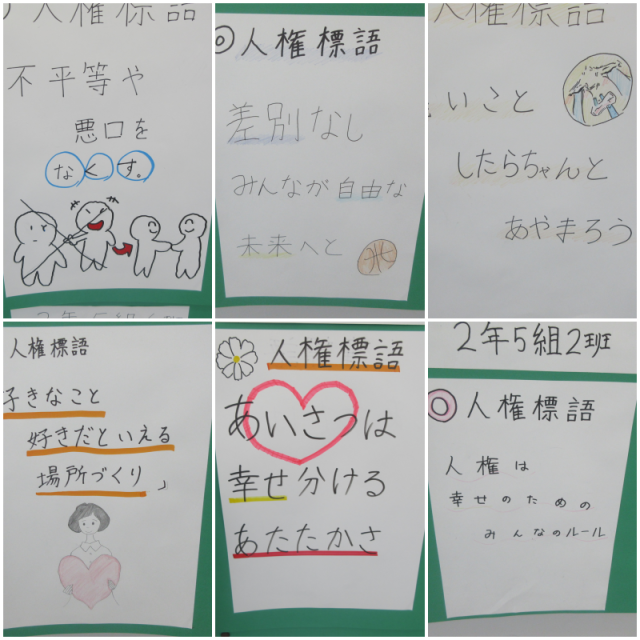 人権標語
不平等や
悪口を
なくす。
2年5組
◎人権標語
差別なし
みんなが自由な
未来へと
人権標語
いこと
したらちゃんと
あやまろう
人権標語
好きなこと
好きだといえる
場所づくり」
人権標語
あいさつは
幸せ分ける
あたたかさ
2年5組2班
◎人権標語
人権は
幸せのための
みんなのルール